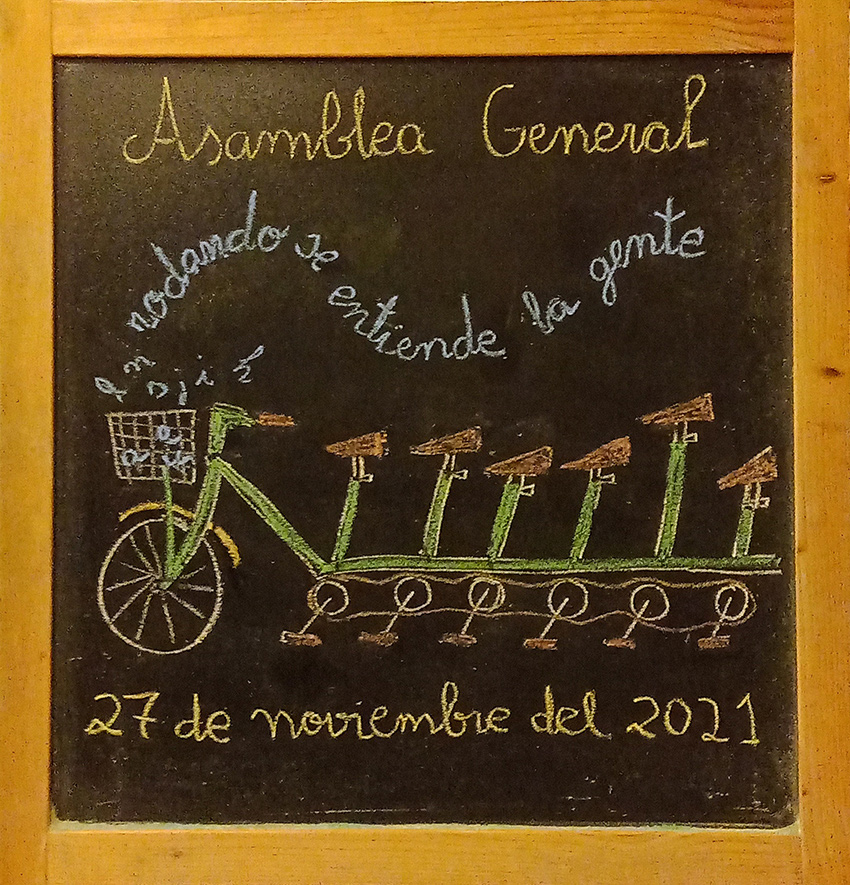 Asamblea General
rodando se entiende la gente
27 de noviembre del 2021